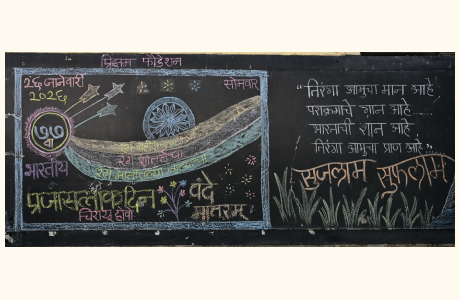 प्रिझम फाउंडेशन
२६ जानेवारी
२०२६
सोमवार
७७
वा
भारतीय
रंग शान
प्रजासत्ताक दिन
चिरायू होवो
वंदे
मातरम्
"तिरंगा आमुचा मान आहे
पराक्रमाचे ज्ञान आहे.....
भारताची शान आहे
तिरंगा आमुचा प्राण आहे"
सुजलाम सुफलाम